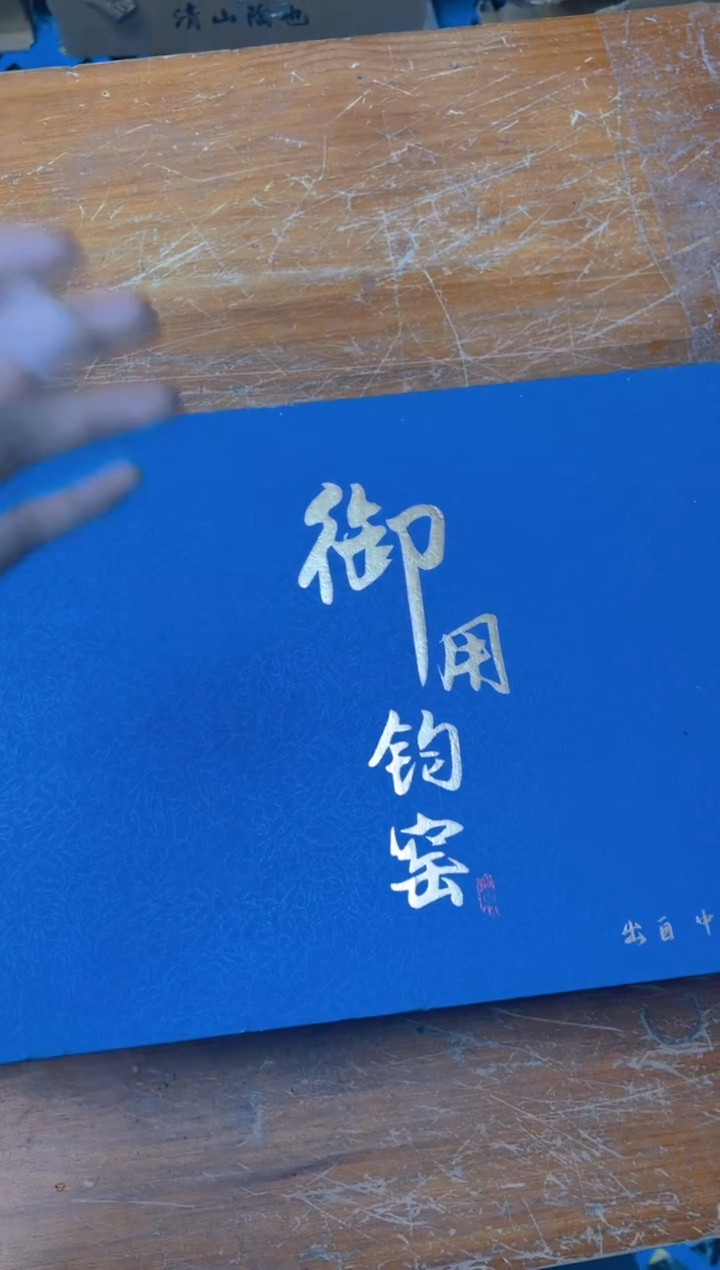 清山陶也
御用
钧窑
出自中